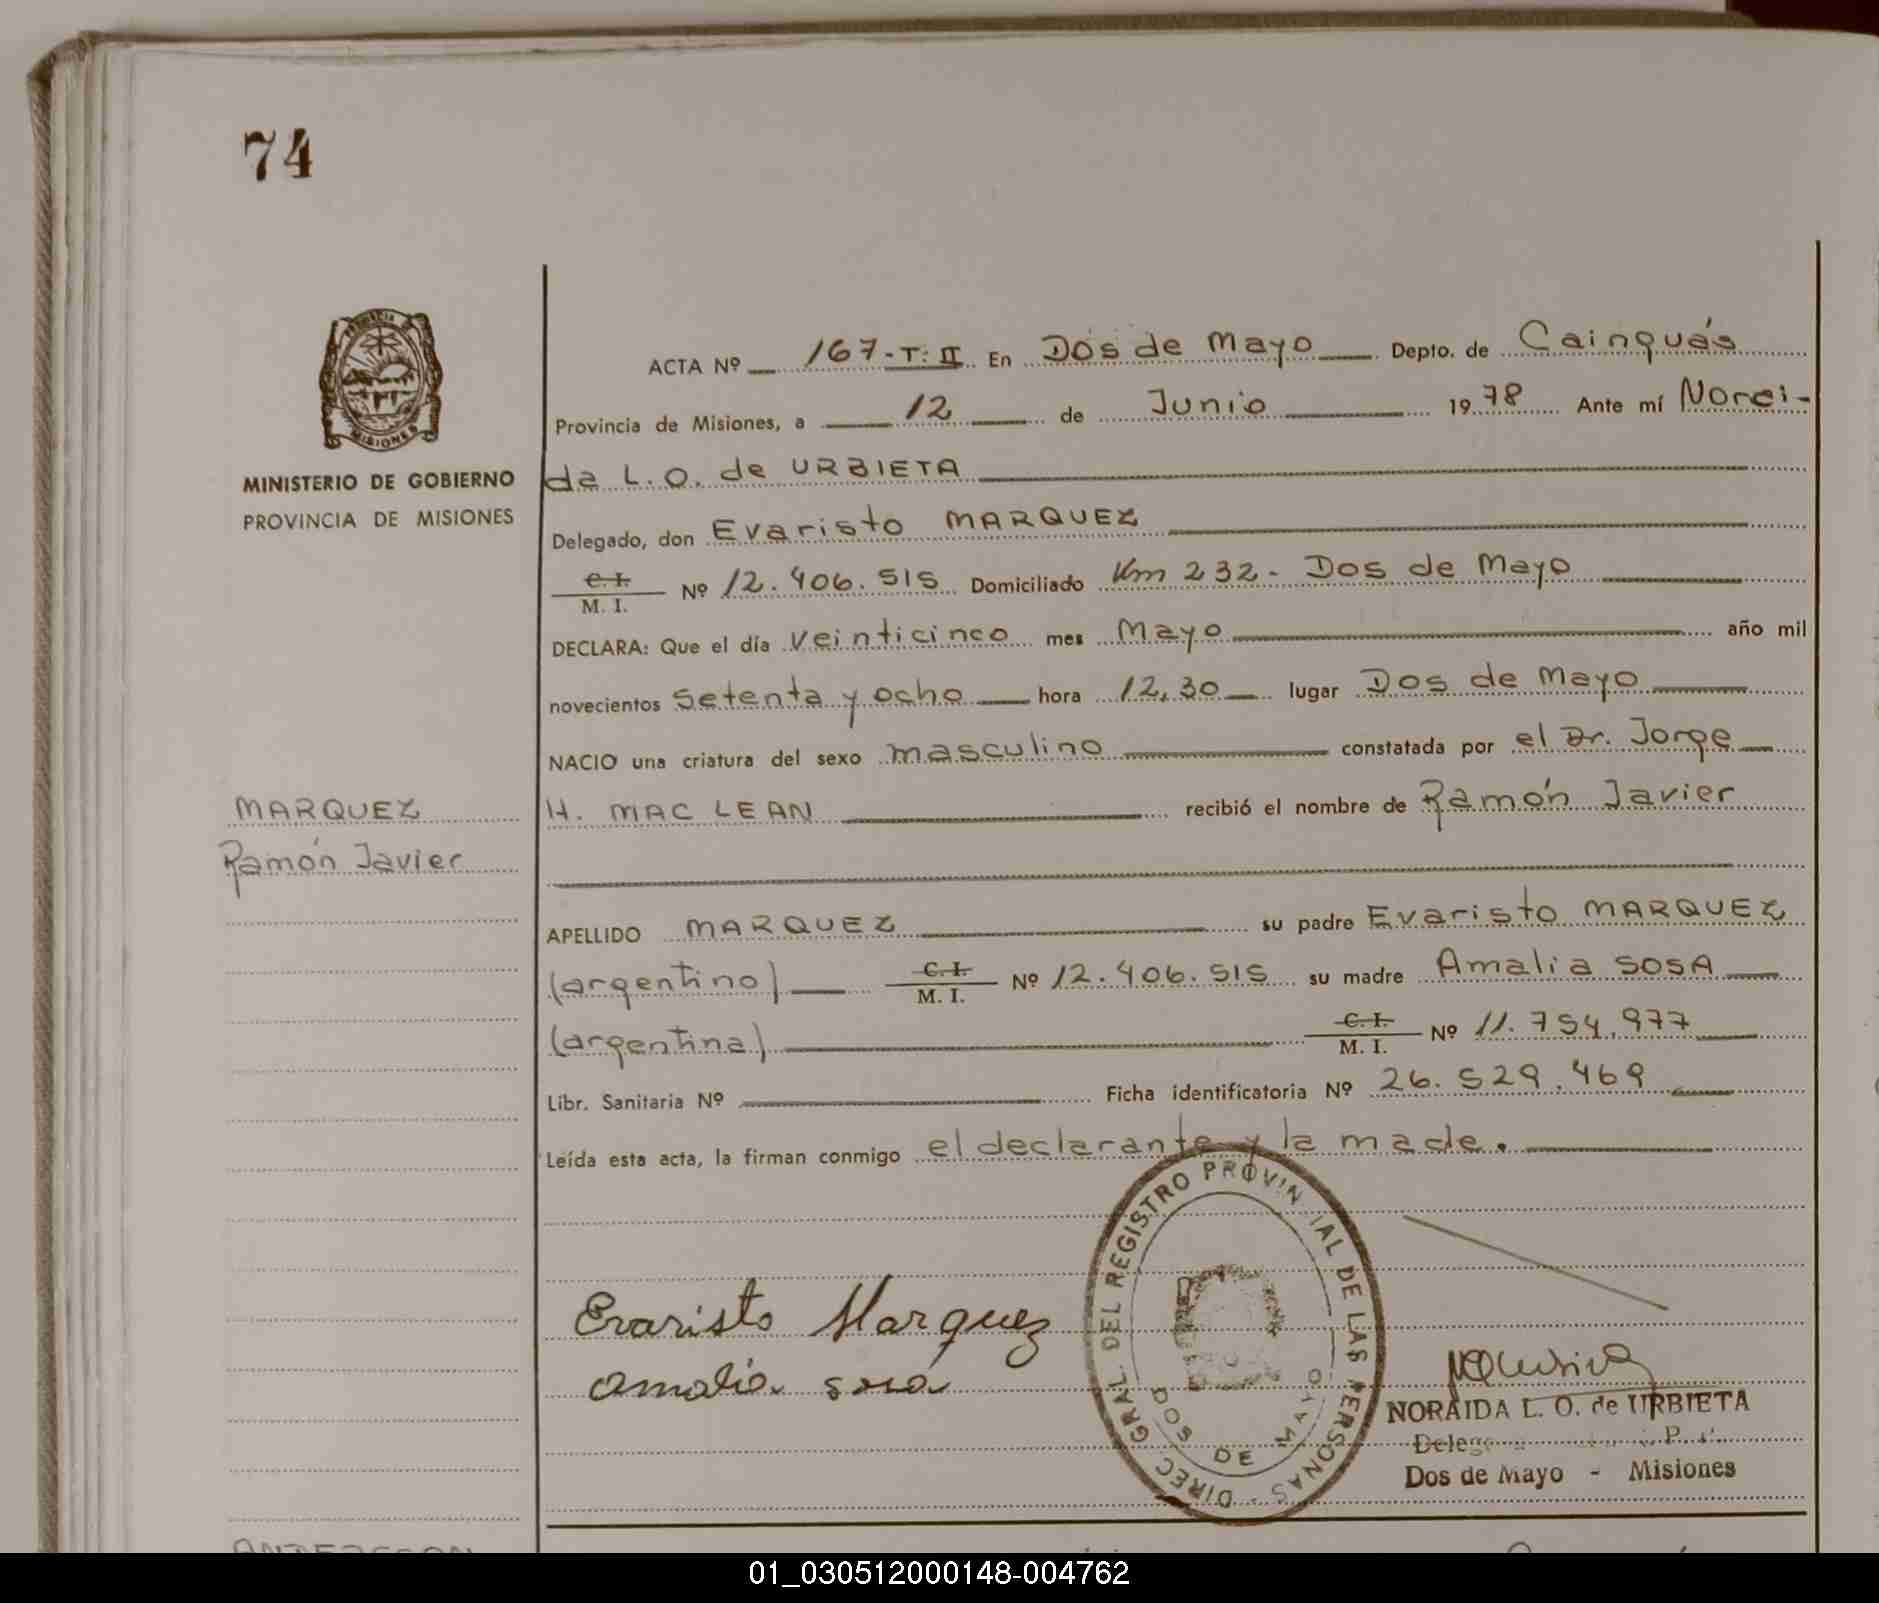 74
PROVINCIA
MISIONES
MINISTERIO DE GOBIERNO
PROVINCIA DE MISIONES
MARQUEZ
Ramón Javier
ACTA Nº 167-T: II En Dos de Mayo Depto. de Cainguás
Provincia de Misiones, a 12 de Junio 1978 Ante mí Norai-
da L. O. de URBIETA
Delegado, don Evaristo MARQUEZ
C. I.
M. I. Nº 12.406.515 Domiciliado Km 232- Dos de Mayo
DECLARA: Que el día veinticinco mes Mayo año mil
novecientos setenta y ocho hora 12,30 lugar Dos de Mayo
NACIO una criatura del sexo masculino constatada por el Dr. Jorge
H. MAC LEAN recibió el nombre de Ramón Javier
APELLIDO MARQUEZ su padre Evaristo MARQUEZ
(argentino) C. I. M. I. Nº 12.406.515 su madre Amalia SOSA
(argentina) C. I. M. I. Nº 11.754.977
Libr. Sanitaria Nº Ficha identificatoria Nº 26.529.469
Leída esta acta, la firman conmigo el declarante y la made.
DIREC GRAL. DEL REGISTRO PROVIN IAL DE LAS PERSONAS -
DOS DE MAYO
Evaristo Marquez
Amalia sosa
NORAIDA L. O. de URBIETA
Dos de Mayo - Misiones
01_030512000148-004762